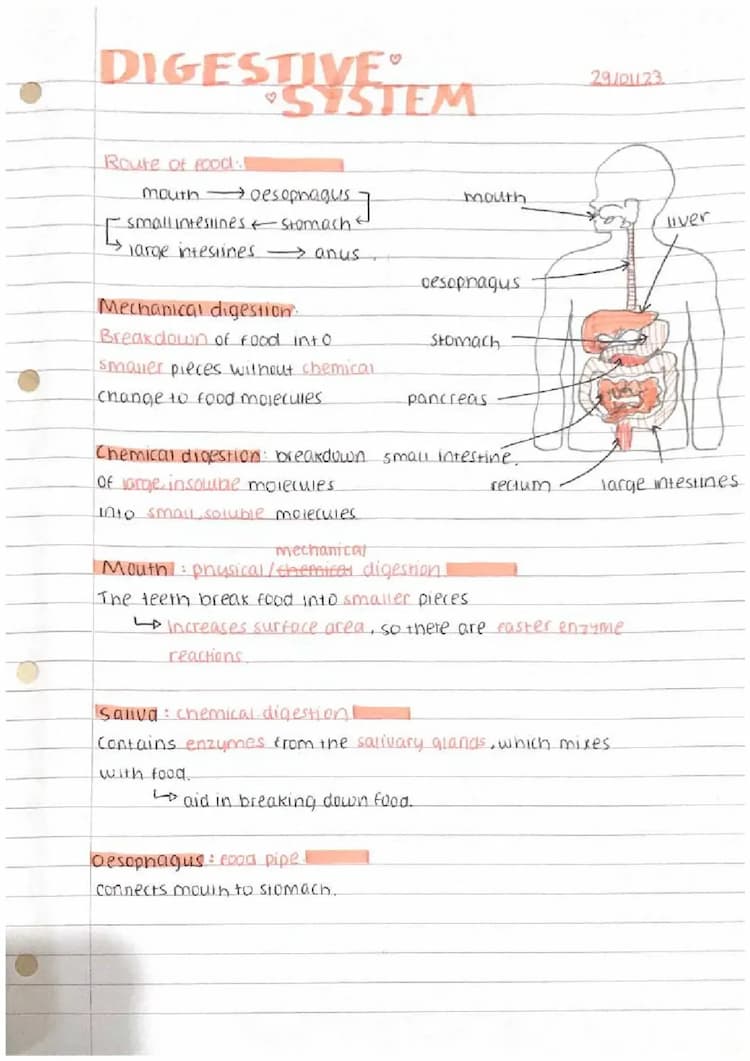 DIGESTIVE
SYSTEM
29/01/23
Route of food:
mouth → oesophagus
small intestines ← stomach
↳ large intestines → anus.
mouth
liver
oesophagus
stomach
pancreas
small intestine.
rectum
large intestines
Mechanical digestion.
Breakdown of food into
smaller pieces without chemical
change to food molecules
Chemical digestion: breakdown
of large, insoluble molecules
into small, soluble molecules
mechanical
Mouth: physical/chemical digestion
The teeth break food into smaller pieces
↳ increases surface area, so there are faster enzyme
reactions.
Saliva: chemical digestion
Contains enzymes from the salivary glands, which mixes
with food.
↳ aid in breaking down food.
Oesophagus: food pipe
connects mouth to stomach.